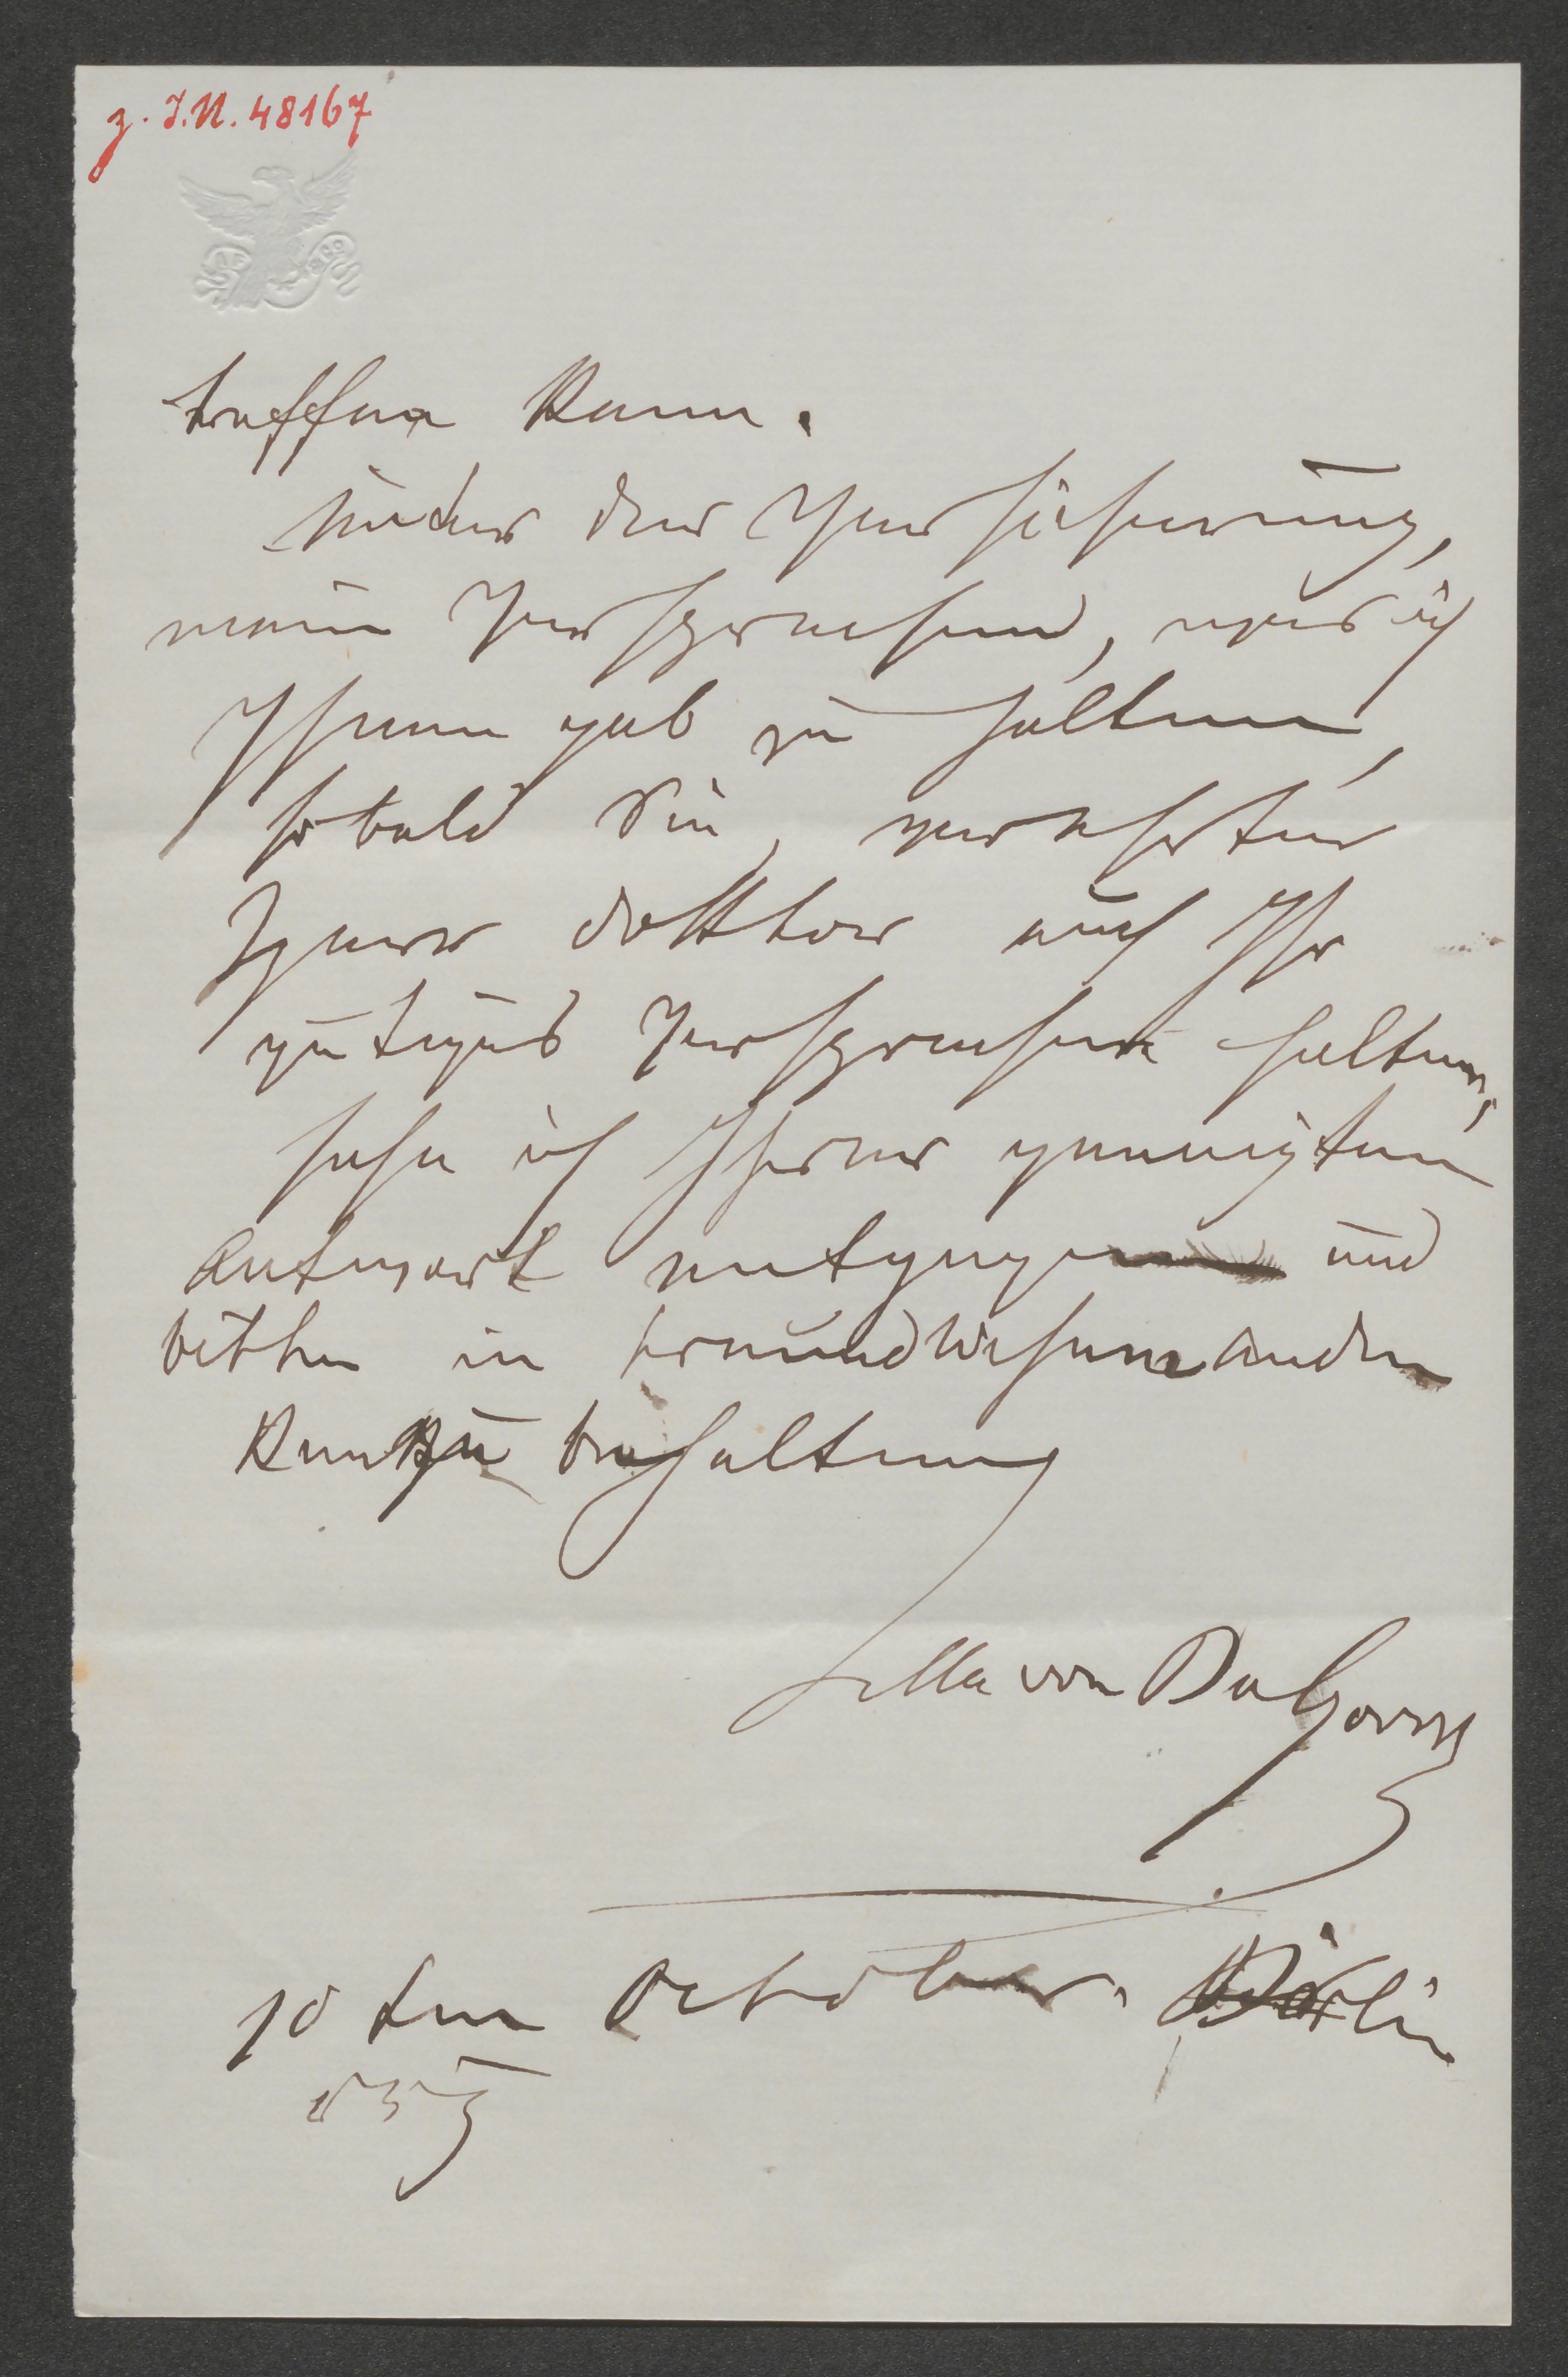 z. I.N. 48167
treffen kann.
Unter der Versicherung,
mein Versprechen, was ich
Ihnen gab zu halten,
so bald Sie, verehrter
Herr Doktor auch Ihr
gütiges Versprechen halten,
sehe ich Ihrer geneigten
Antwort entgegen und
bitte in freundlichem Anden
ken zu behalten
von
10 ten October. Berlin